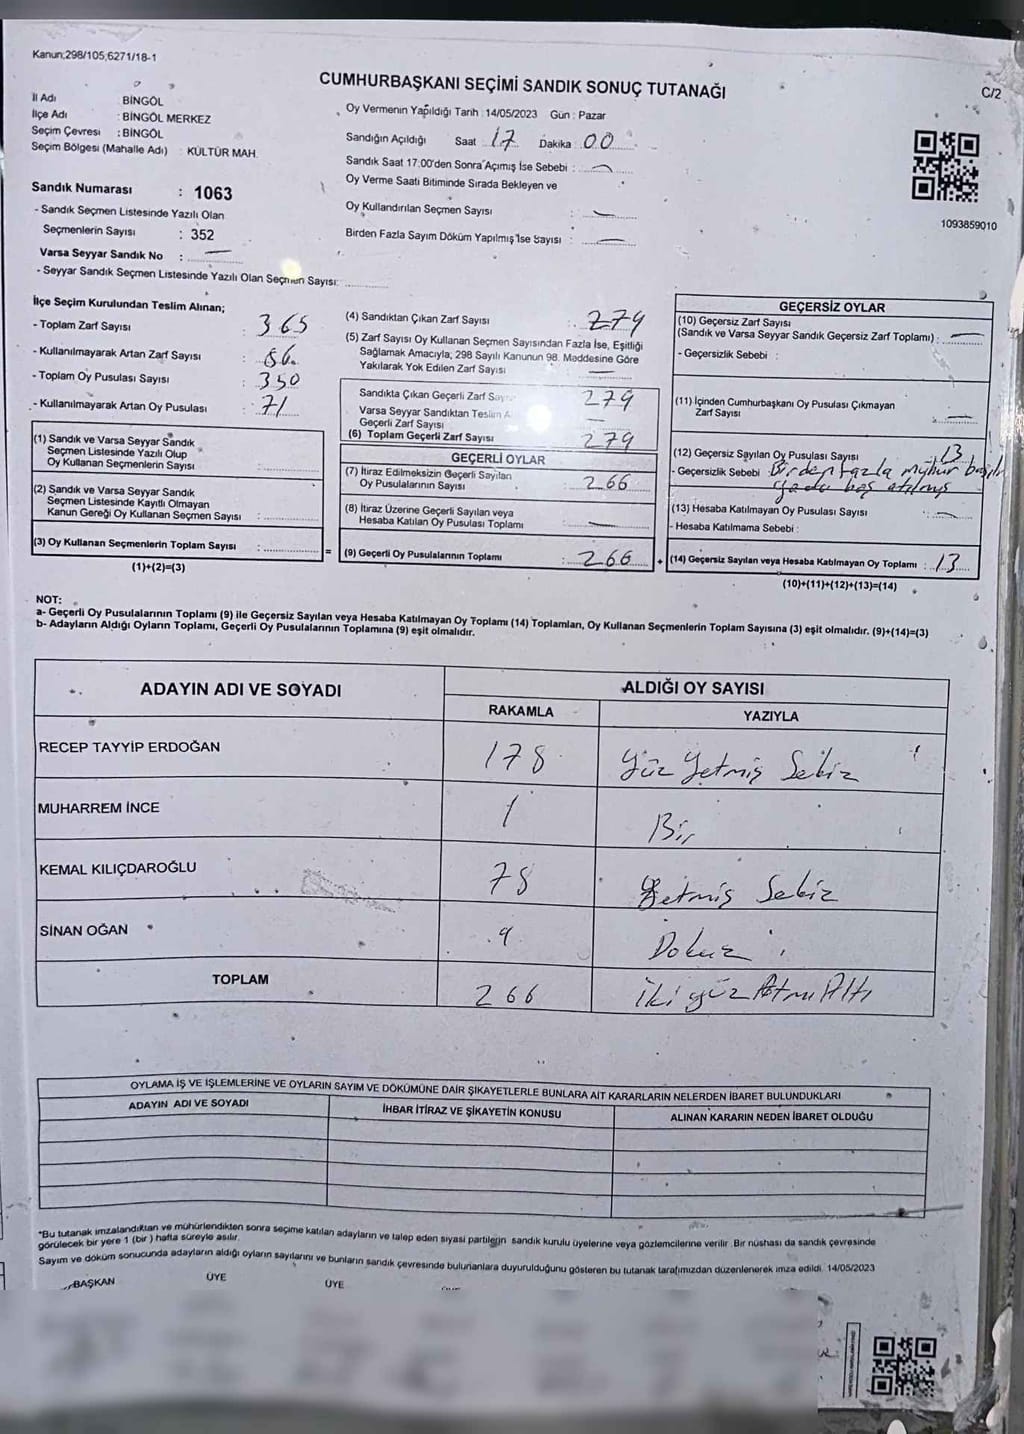 Kanun;298/105;6271/18-1
CUMHURBAŞKANI SEÇİMİ SANDIK SONUÇ TUTANAĞI
C/2
İl Adı : BİNGÖL
İlçe Adı : BİNGÖL MERKEZ
Seçim Çevresi : BİNGÖL
Seçim Bölgesi (Mahalle Adı) : KÜLTÜR MAH.
Oy Vermenin Yapıldığı Tarih : 14/05/2023 Gün : Pazar
Sandığın Açıldığı Saat 17 Dakika 00
Sandık Saat 17:00'den Sonra Açımış İse Sebebi :
Oy Verme Saati Bitiminde Sırada Bekleyen ve
Oy Kullandırılan Seçmen Sayısı :
Birden Fazla Sayım Döküm Yapılmış İse Sayısı :
1093859010
Sandık Numarası : 1063
- Sandık Seçmen Listesinde Yazılı Olan
Seçmenlerin Sayısı : 352
Varsa Seyyar Sandık No :
- Seyyar Sandık Seçmen Listesinde Yazılı Olan Seçmen Sayısı:
İlçe Seçim Kurulundan Teslim Alınan;
- Toplam Zarf Sayısı : 365
- Kullanılmayarak Artan Zarf Sayısı : 86
- Toplam Oy Pusulası Sayısı : 350
- Kullanılmayarak Artan Oy Pusulası : 71
(1) Sandık ve Varsa Seyyar Sandık
Seçmen Listesinde Yazılı Olup
Oy Kullanan Seçmenlerin Sayısı :
(2) Sandık ve Varsa Seyyar Sandık
Seçmen Listesinde Kayıtlı Olmayan
Kanun Gereği Oy Kullanan Seçmen Sayısı :
(3) Oy Kullanan Seçmenlerin Toplam Sayısı :
(1)+(2)=(3)
(4) Sandıktan Çıkan Zarf Sayısı : 279
(5) Zarf Sayısı Oy Kullanan Seçmen Sayısından Fazla İse, Eşitliği
Sağlamak Amacıyla, 298 Sayılı Kanunun 98. Maddesine Göre
Yakılarak Yok Edilen Zarf Sayısı
Sandıkta Çıkan Geçerli Zarf 279
Varsa Seyyar Sandıktan Teslim
Geçerli Zarf Sayısı
(6) Toplam Geçerli Zarf Sayısı 279
GEÇERLİ OYLAR
(7) İtiraz Edilmeksizin Geçerli Sayılan
Oy Pusulalarının Sayısı : 266
(8) İtiraz Üzerine Geçerli Sayılan veya
Hesaba Katılan Oy Pusulası Toplamı
= (9) Geçerli Oy Pusulalarının Toplamı : 266
GEÇERSİZ OYLAR
(10) Geçersiz Zarf Sayısı
(Sandık ve Varsa Seyyar Sandık Geçersiz Zarf Toplamı) :
- Geçersizlik Sebebi :
(11) İçinden Cumhurbaşkanı Oy Pusulası Çıkmayan
Zarf Sayısı
(12) Geçersiz Sayılan Oy Pusulası Sayısı 13
- Geçersizlik Sebebi : Birden fazla mühür
yada boş atılmış
(13) Hesaba Katılmayan Oy Pusulası Sayısı :
- Hesaba Katılmama Sebebi :
+ (14) Geçersiz Sayılan veya Hesaba Katılmayan Oy Toplamı : 13
(10)+(11)+(12)+(13)=(14)
NOT:
a- Geçerli Oy Pusulalarının Toplamı (9) ile Geçersiz Sayılan veya Hesaba Katılmayan Oy Toplamı (14) Toplamları, Oy Kullanan Seçmenlerin Toplam Sayısına (3) eşit olmalıdır. (9)+(14)=(3)
b- Adayların Aldığı Oyların Toplamı, Geçerli Oy Pusulalarının Toplamına (9) eşit olmalıdır.
ADAYIN ADI VE SOYADI ALDIĞI OY SAYISI
RAKAMLA YAZIYLA
RECEP TAYYİP ERDOĞAN 178 Yüz Yetmiş Sekiz
MUHARREM İNCE 1 Bir
KEMAL KILIÇDAROĞLU 78 Yetmiş Sekiz
SİNAN OĞAN 9 Dokuz
TOPLAM 266 İki yüz Atmı Altı
OYLAMA İŞ VE İŞLEMLERİNE VE OYLARIN SAYIM VE DÖKÜMÜNE DAİR ŞİKAYETLERLE BUNLARA AİT KARARLARIN NELERDEN İBARET BULUNDUKLARI
ADAYIN ADI VE SOYADI İHBAR İTİRAZ VE ŞİKAYETİN KONUSU ALINAN KARARIN NEDEN İBARET OLDUĞU
*Bu tutanak imzalandıktan ve mühürlendikten sonra seçime katılan adayların ve talep eden siyasi partilerin sandık kurulu üyelerine veya gözlemcilerine verilir. Bir nüshası da sandık çevresinde
görülecek bir yere 1 (bir) hafta süreyle asılır.
Sayım ve döküm sonucunda adayların aldığı oyların sayılarını ve bunların sandık çevresinde bulunanlara duyurulduğunu gösteren bu tutanak tarafımızdan düzenlenerek imza edildi. 14/05/2023
BAŞKAN ÜYE ÜYE